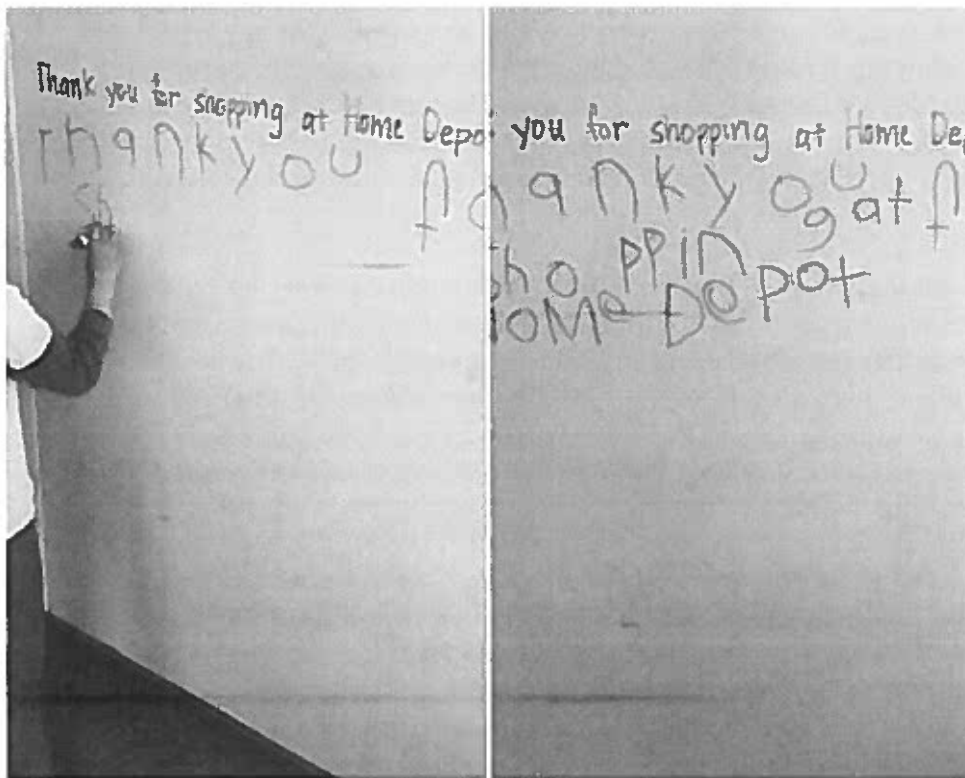 Thank you for shopping at Home Depo
Thank you f
Sh
you for shopping at Home De
hanky ou at f
g
ho ppin
HoMe De pot